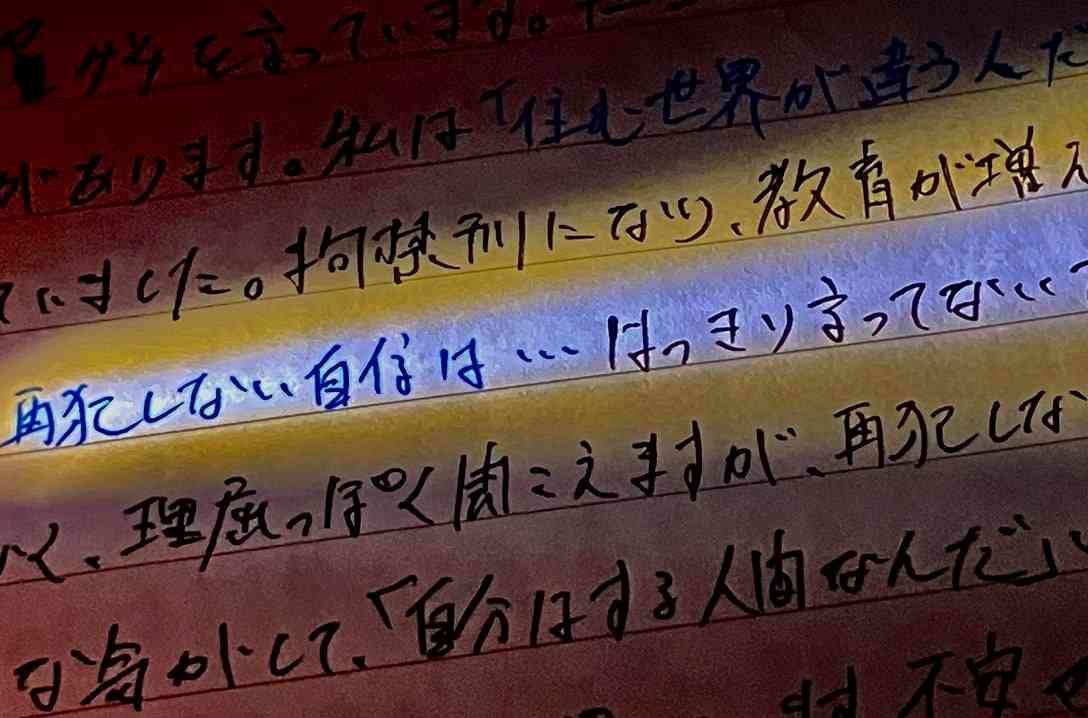 を言っています。
があります。私は「住む世界が違う人だ
ていました。拘禁刑になり、教育が増え
再犯しない自信は…はっきり言ってないで
く、理屈っぽく聞こえますが、再犯しな
な気がして、「自分はする人間なんだ」
不安